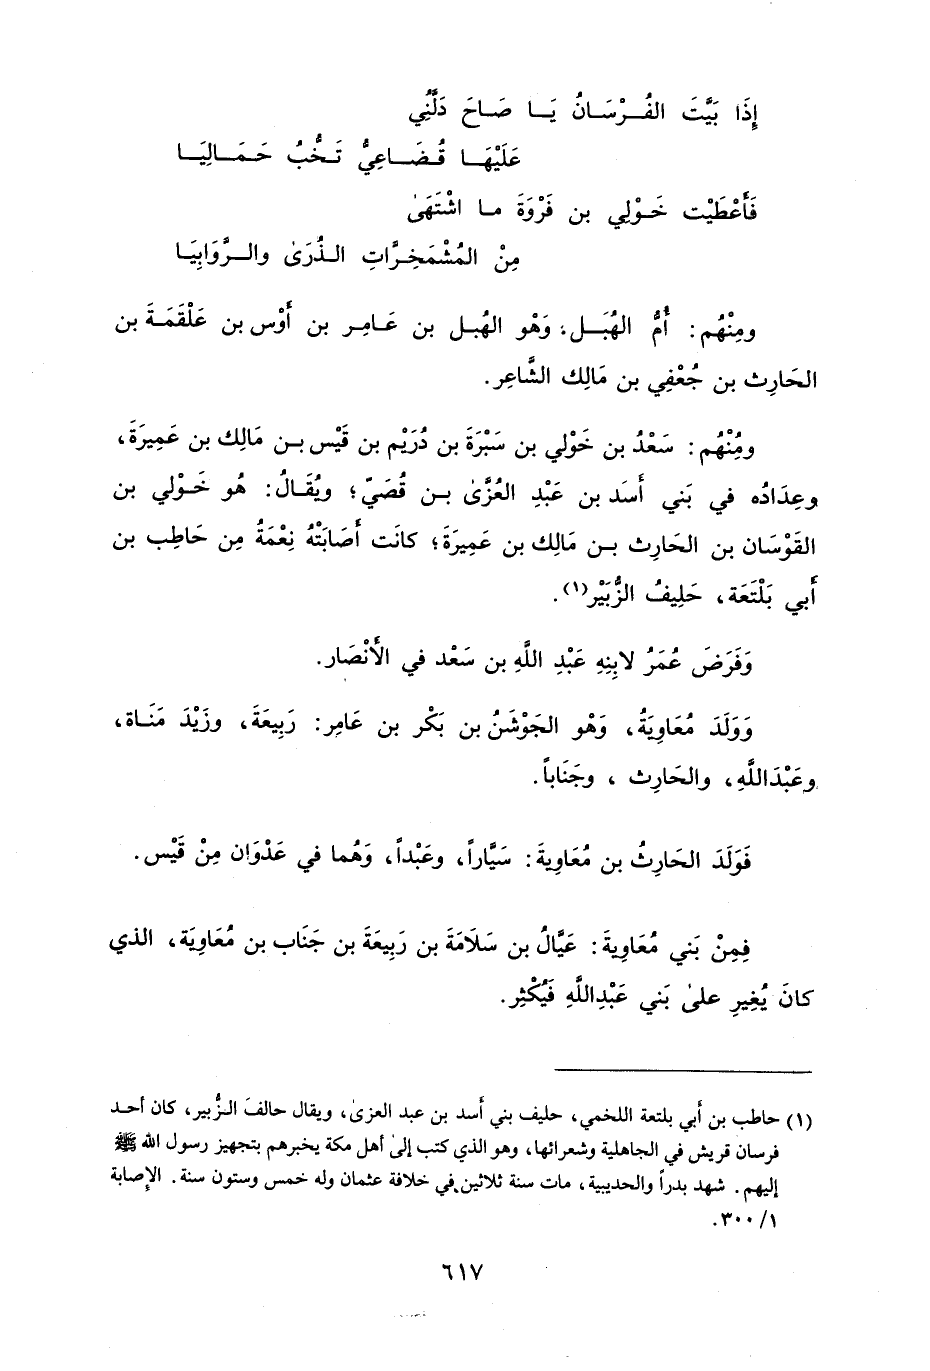 إِذَا بَيَّتَ الفُرْسَانُ يَا صَاحَ دَلَّنِي
عَلَيْهَا قُضَاعِيٌّ تَخُبُّ حَمَالِيَا
فَأَعْطَيْت خَوْلِي بن فَرْوَةَ ما اشْتَهَىٰ
مِنْ المُشْمَخِرَّاتِ الذُرَىٰ والرَّوَابِيَا
ومِنْهُم: أُمُّ الهُبَل، وَهْو الهُبل بن عَامِر بن أَوْس بن عَلْقَمَةَ بن
الحَارِث بن جُعْفِي بن مَالِك الشَّاعِر.
ومُنْهُم: سَعْدُ بن خَوْلي بن سَبْرَةَ بن دُرَيْم بن قَيْس بن مَالِك بن عَمِيرَةَ،
وعِدَادُه في بَني أَسَد بن عَبْدِ العُزَّىٰ بن قُصَيّ؛ ويُقَالُ: هُو خَوْلي بن
القَوْسَان بن الحَارِث بن مَالِك بن عَمِيرَةَ؛ كانَت أَصَابَتْهُ نِعْمَةُ مِن حَاطِب بن
أَبي بَلْتَعَة، حَلِيفُ الزُّبَيْر(١).
وَفَرَضَ عُمَرُ لابنِهِ عَبْدِ اللَّهِ بن سَعْد في الأَنْصَار.
وَوَلَدَ مُعَاوِيَةُ، وَهْو الجَوْشَنُ بن بَكْر بن عَامِر: رَبِيعَةَ، وزَيْدَ مَنَاة،
وعَبْدَاللَّهِ، والحَارِث، وجَنَاباً.
فَوَلَدَ الحَارِثُ بن مُعَاوِيةَ: سَيَّاراً، وعَبْداً، وَهُما في عَدْوَان مِنْ قَيْس.
فِمِنْ بَني مُعَاوِيةَ: عَيَّالُ بن سَلَامَةَ بن رَبِيعَةَ بن جَنَاب بن مُعَاوِيَة، الذي
كانَ يُغِيرِ علىٰ بَني عَبْدِاللَّهِ فَيُكْثِر.
(١) حاطب بن أبي بلتعة اللخمي، حليف بني أسد بن عبد العزىٰ، ويقال حالفَ الزُّبير، كان أحد
فرسان قريش في الجاهلية وشعرائها، وهو الذي كتب إلىٰ أهل مكة يخبرهم بتجهيز رسول الله ﷺ
إليهم. شهد بدراً والحديبية، مات سنة ثلاثين في خلافة عثمان وله خمس وستون سنة. الإصابة
١/ ٣٠٠.
٦١٧